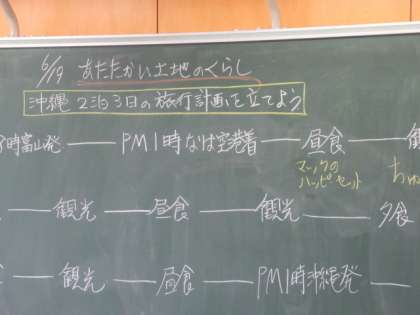 6/19 あたたかい土地のくらし
沖縄 2泊3日の旅行計画を立てよう
時富山発 — PM1時なは空港着 — 昼食 — 観
マックの
ハッピーセット
ちゅ
観光 — 昼食 — 観光 — 夕食
観光 — 昼食 — PM1時沖縄発